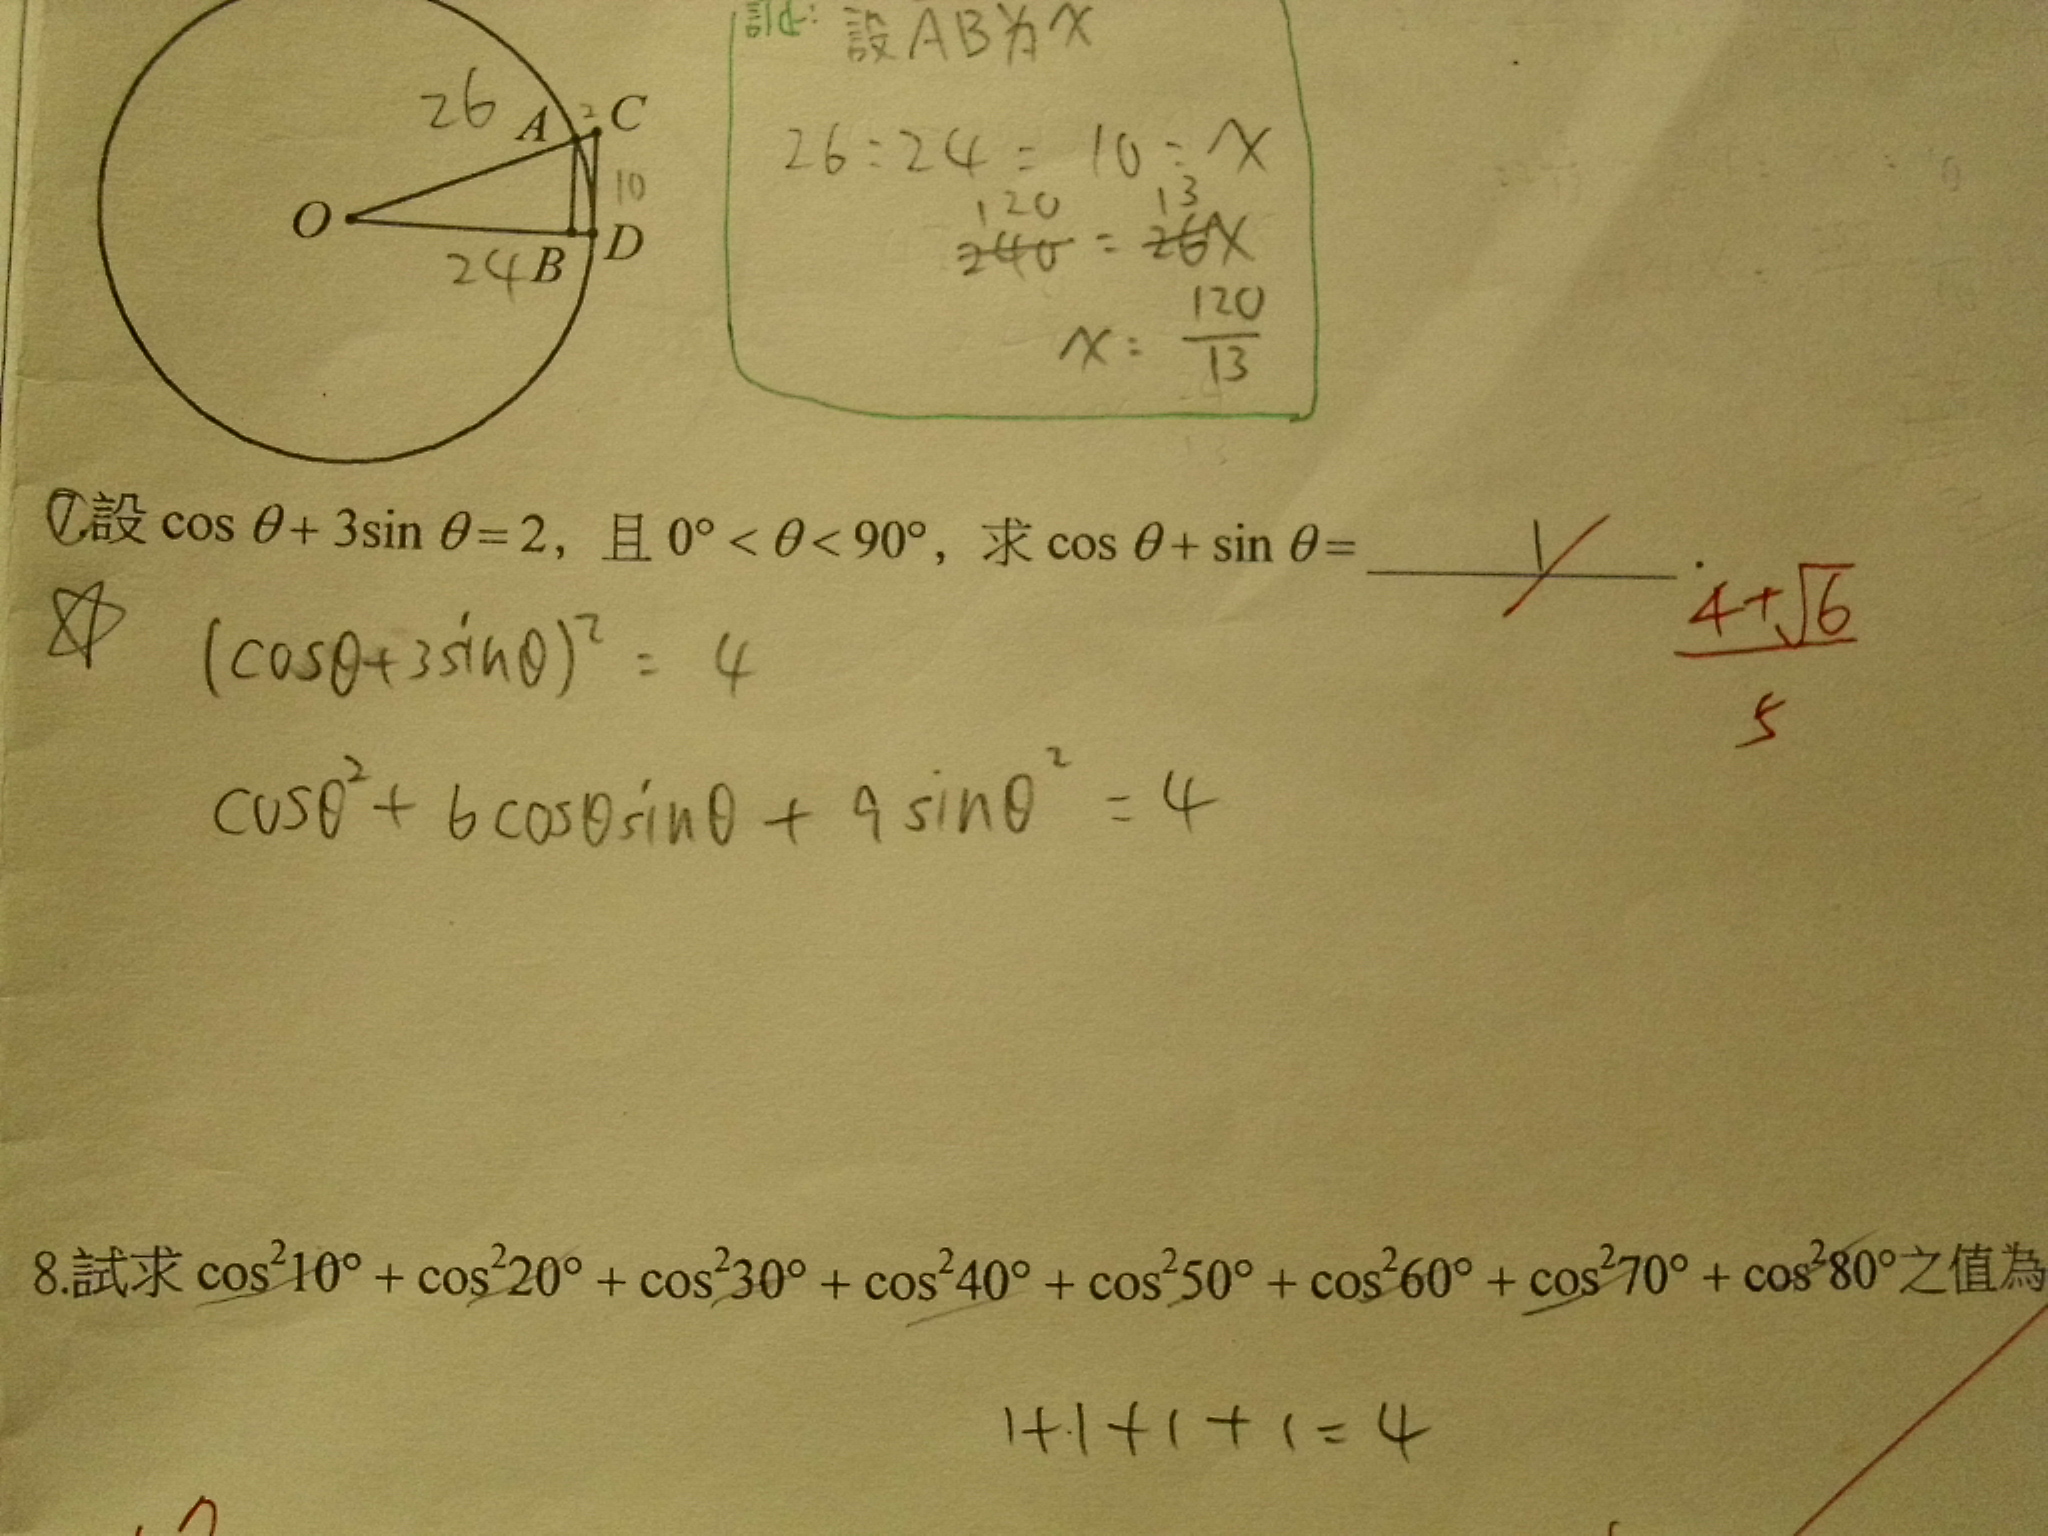 設AB为x
26 A 2 C
26:24 = 10:x
10
120 13
O
240 = 26x
24 B D
120
x = 
13
7.設 cos θ + 3sin θ = 2, 且 0° < θ < 90°, 求 cos θ + sin θ = 1.
4+√6
5
(cosθ+3sinθ)² = 4
cosθ² + 6cosθsinθ + 9sinθ² = 4
8.試求 cos²10° + cos²20° + cos²30° + cos²40° + cos²50° + cos²60° + cos²70° + cos²80°之值為
1+1+1+1=4